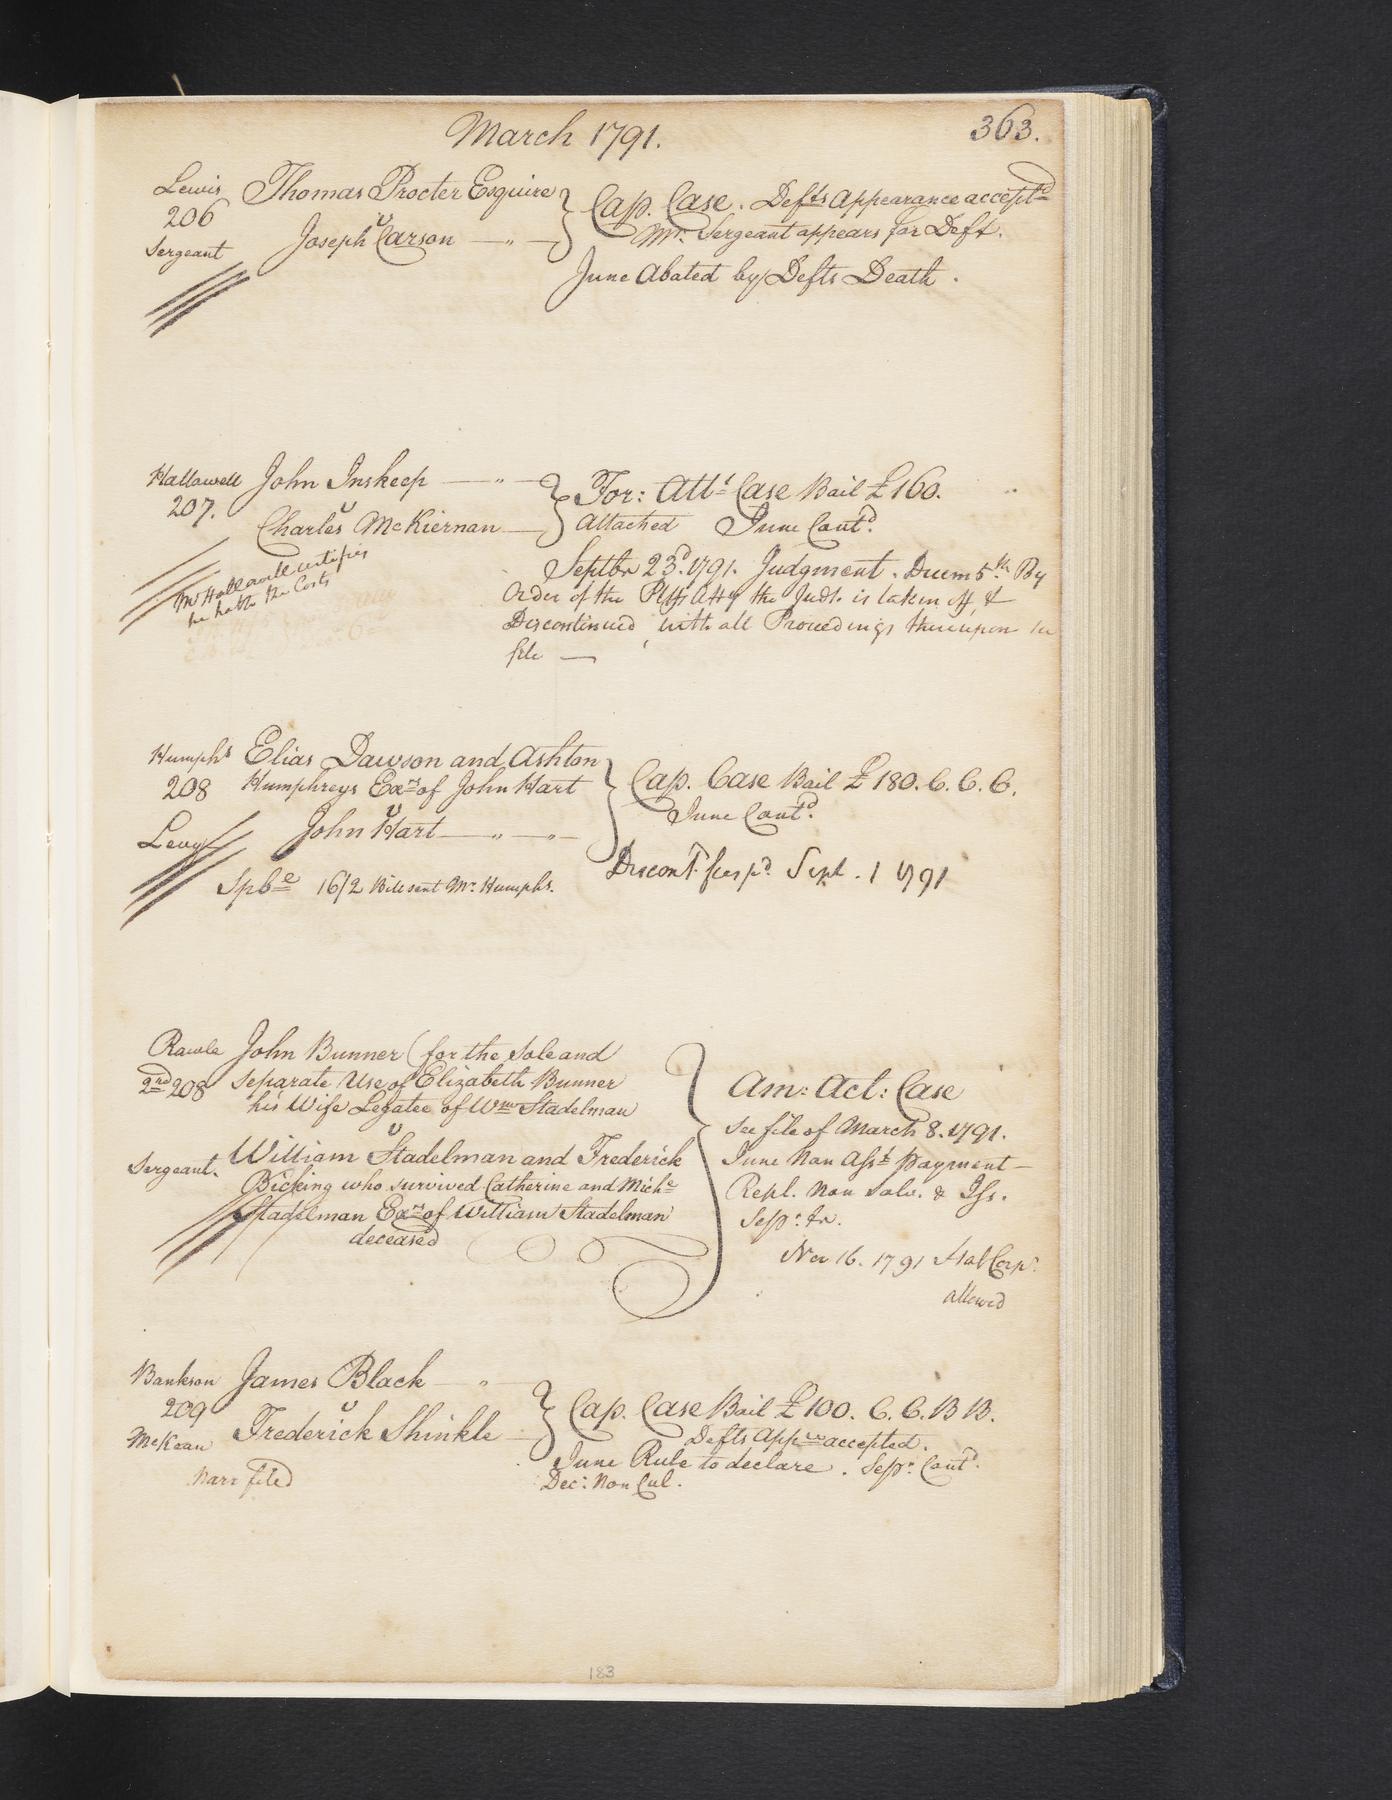 March 1791.
363.
Lewis Thomas Procter Esquire
206 v
Sergeant Joseph Carson
Cap. Case. Defts appearance accept^d
Mr. Sergeant appears for Deft.
June Abated by Defts Death.
Hallowell John Inskeep
207. v
Charles McKiernan
Mr Hallowell certifies
he hath the Costs
For: Att^t Case Bail £160.
attached June Cont^d.
Septbr 23^d. 1791. Judgment. Decem 5.th By
Order of the Plffs Atty the Judt. is taken off, &
Discontinued with all Proceedings thereupon
file
Humphs Elias Dawson and Ashton
208 Humphreys Exrs of John Hart
v
Levy John Hart
Spbe 16/2 Bill sent Mr. Humphs.
Cap. Case Bail £180. C. C. C.
June Cont^d.
Discont. Sept. 1 1791
Rawle John Bunner (for the Sole and
2nd 208 separate Use of Elizabeth Bunner
his Wife Legatee of Wm Stadelman
v
Sergeant. William Stadelman and Frederick
Bicking who survived Catherine and Mich^e
Stadelman Exrs of William Stadelman
deceased
Am: Act: Case
see file of March 8. 1791.
June Non Ass^t Payment
Repl. Non Solv. & Iss.
Sep^r. tr.
Nov 16. 1791 Hab Corp^s
allowed
Bankson James Black
209 v
McKean Frederick Shinkle
Narr filed
Cap. Case Bail £100. C. C. B B.
Defts App^ce accepted.
June Rule to declare. Sep^r. Cont^d.
Dec: Non Cul.
183